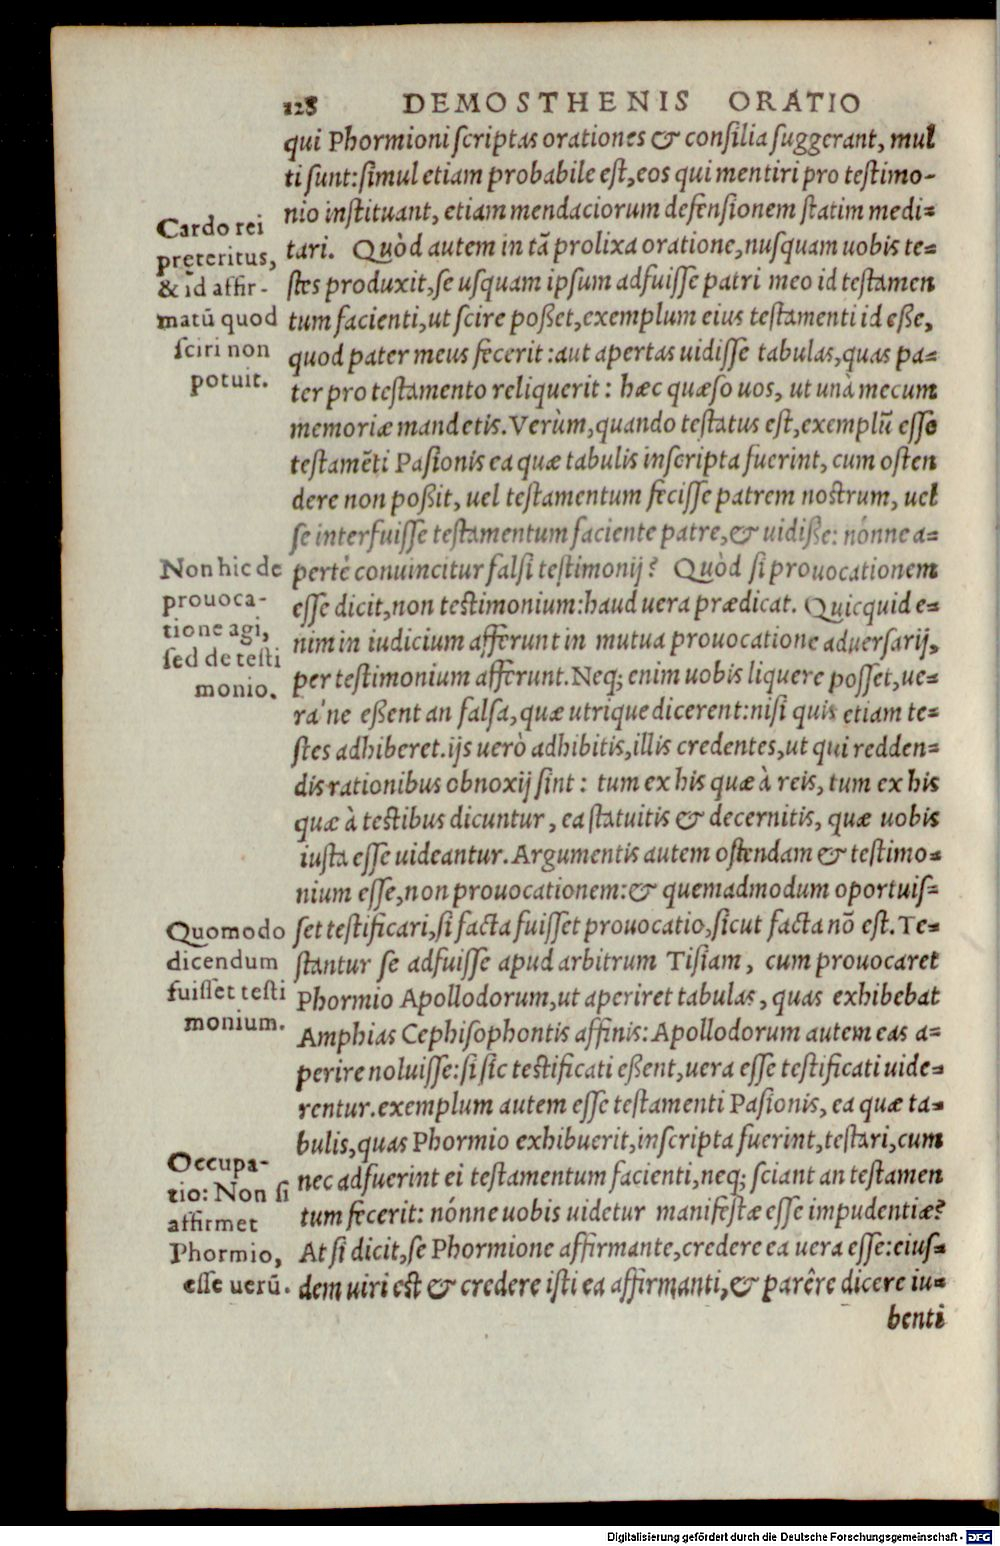 128 DEMOSTHENIS ORATIO
qui Phormioni scriptas orationes & consilia suggerant, mul
ti sunt: simul etiam probabile est, eos qui mentiri pro testimo-
nio instituant, etiam mendaciorum defensionem statim medi-
tari. Quòd autem in tā prolixa oratione, nusquam uobis te-
stes produxit, se usquam ipsum adfuisse patri meo id testamen
tum facienti, ut scire poßet, exemplum eius testamenti id eße,
quod pater meus fecerit: aut apertas uidisse tabulas, quas pa-
ter pro testamento reliquerit: hæc quæso uos, ut unà mecum
memoriæ mandetis. Verùm, quando testatus est, exemplū esse
testamēti Pasionis ea quæ tabulis inscripta fuerint, cum osten
dere non poßit, uel testamentum fecisse patrem nostrum, uel
se interfuisse testamentum faciente patre, & uidiße: nónne a-
pertè conuincitur falsi testimonij? Quòd si prouocationem
esse dicit, non testimonium: haud uera prædicat. Quicquid e-
nim in iudicium afferunt in mutua prouocatione aduersarij,
per testimonium afferunt. Neq; enim uobis liquere posset, ue-
ra'ne eßent an falsa, quæ utrique dicerent: nisi quis etiam te-
stes adhiberet. ijs uerò adhibitis, illis credentes, ut qui redden-
dis rationibus obnoxij sint: tum ex his quæ à reis, tum ex his
quæ à testibus dicuntur, ea statuitis & decernitis, quæ uobis
iusta esse uideantur. Argumentis autem ostendam & testimo-
nium esse, non prouocationem: & quemadmodum oportuis-
set testificari, si facta fuisset prouocatio, sicut facta nō est. Te-
stantur se adfuisse apud arbitrum Tisiam, cum prouocaret
Phormio Apollodorum, ut aperiret tabulas, quas exhibebat
Amphias Cephisophontis affinis: Apollodorum autem eas a-
perire noluisse: si sic testificati eßent, uera esse testificati uide-
rentur. exemplum autem esse testamenti Pasionis, ea quæ ta-
bulis, quas Phormio exhibuerit, inscripta fuerint, testari, cum
nec adfuerint ei testamentum facienti, neq; sciant an testamen
tum fecerit: nónne uobis uidetur manifestæ esse impudentiæ?
At si dicit, se Phormione affirmante, credere ea uera esse: eius-
dem uiri est & credere isti ea affirmanti, & parêre dicere iu-
benti
Cardo rei
preteritus,
& id affir-
matū quod
sciri non
potuit.
Non hic de
prouoca-
tione agi,
sed de testi
monio.
Quomodo
dicendum
fuisset testi
monium.
Occupa-
tio: Non si
affirmet
Phormio,
esse uerū.
Digitalisierung gefördert durch die Deutsche Forschungsgemeinschaft - DFG